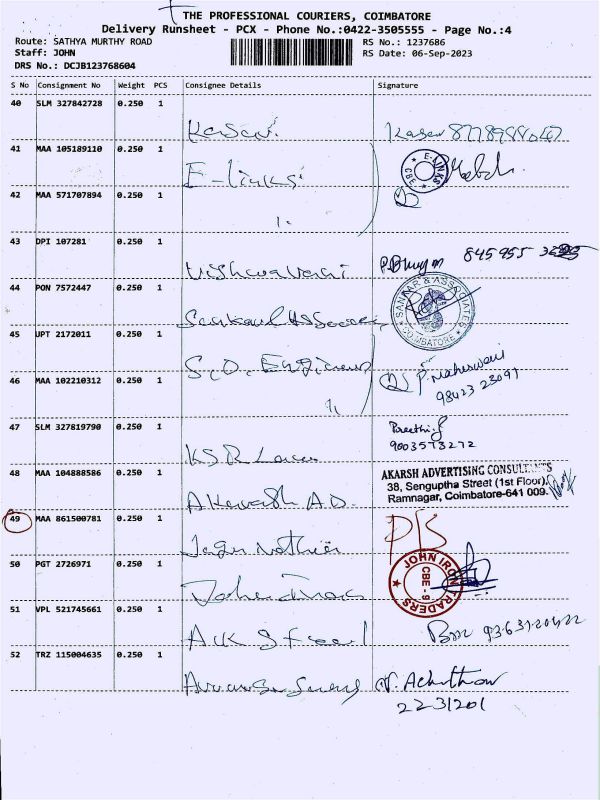 THE PROFESSIONAL COURIERS, COIMBATORE
Delivery Runsheet - PCX - Phone No.:0422-3505555 - Page No.:4
Route: SATHYA MURTHY ROAD
RS No.: 1237686
Staff: JOHN
RS Date: 06-Sep-2023
DRS No.: DCJB123768604
S No Consignment No Weight PCS Consignee Details Signature
40 SLM 327842728 0.250 1
41 MAA 105189110 0.250 1
E-links
E-LINKS
CBE
42 MAA 571707894 0.250 1
43 DPI 107281 0.250 1
845 955
44 PON 7572447 0.250 1
SANKAR & ASSOCIATES
COIMBATORE
45 UPT 2172011 0.250 1
46 MAA 102210312 0.250 1
P. Maheswari
98423 23091
47 SLM 327819790 0.250 1
Preethi.
9003573272
KSR
48 MAA 104888586 0.250 1
AKARSH ADVERTISING CONSULTANTS
38, Senguptha Street (1st Floor),
Ramnagar, Coimbatore-641 009.
49 MAA 861500781 0.250 1
50 PGT 2726971 0.250 1
JOHN IRON TRADERS
CBE - 9
51 VPL 521745661 0.250 1
52 TRZ 115004635 0.250 1
2231201